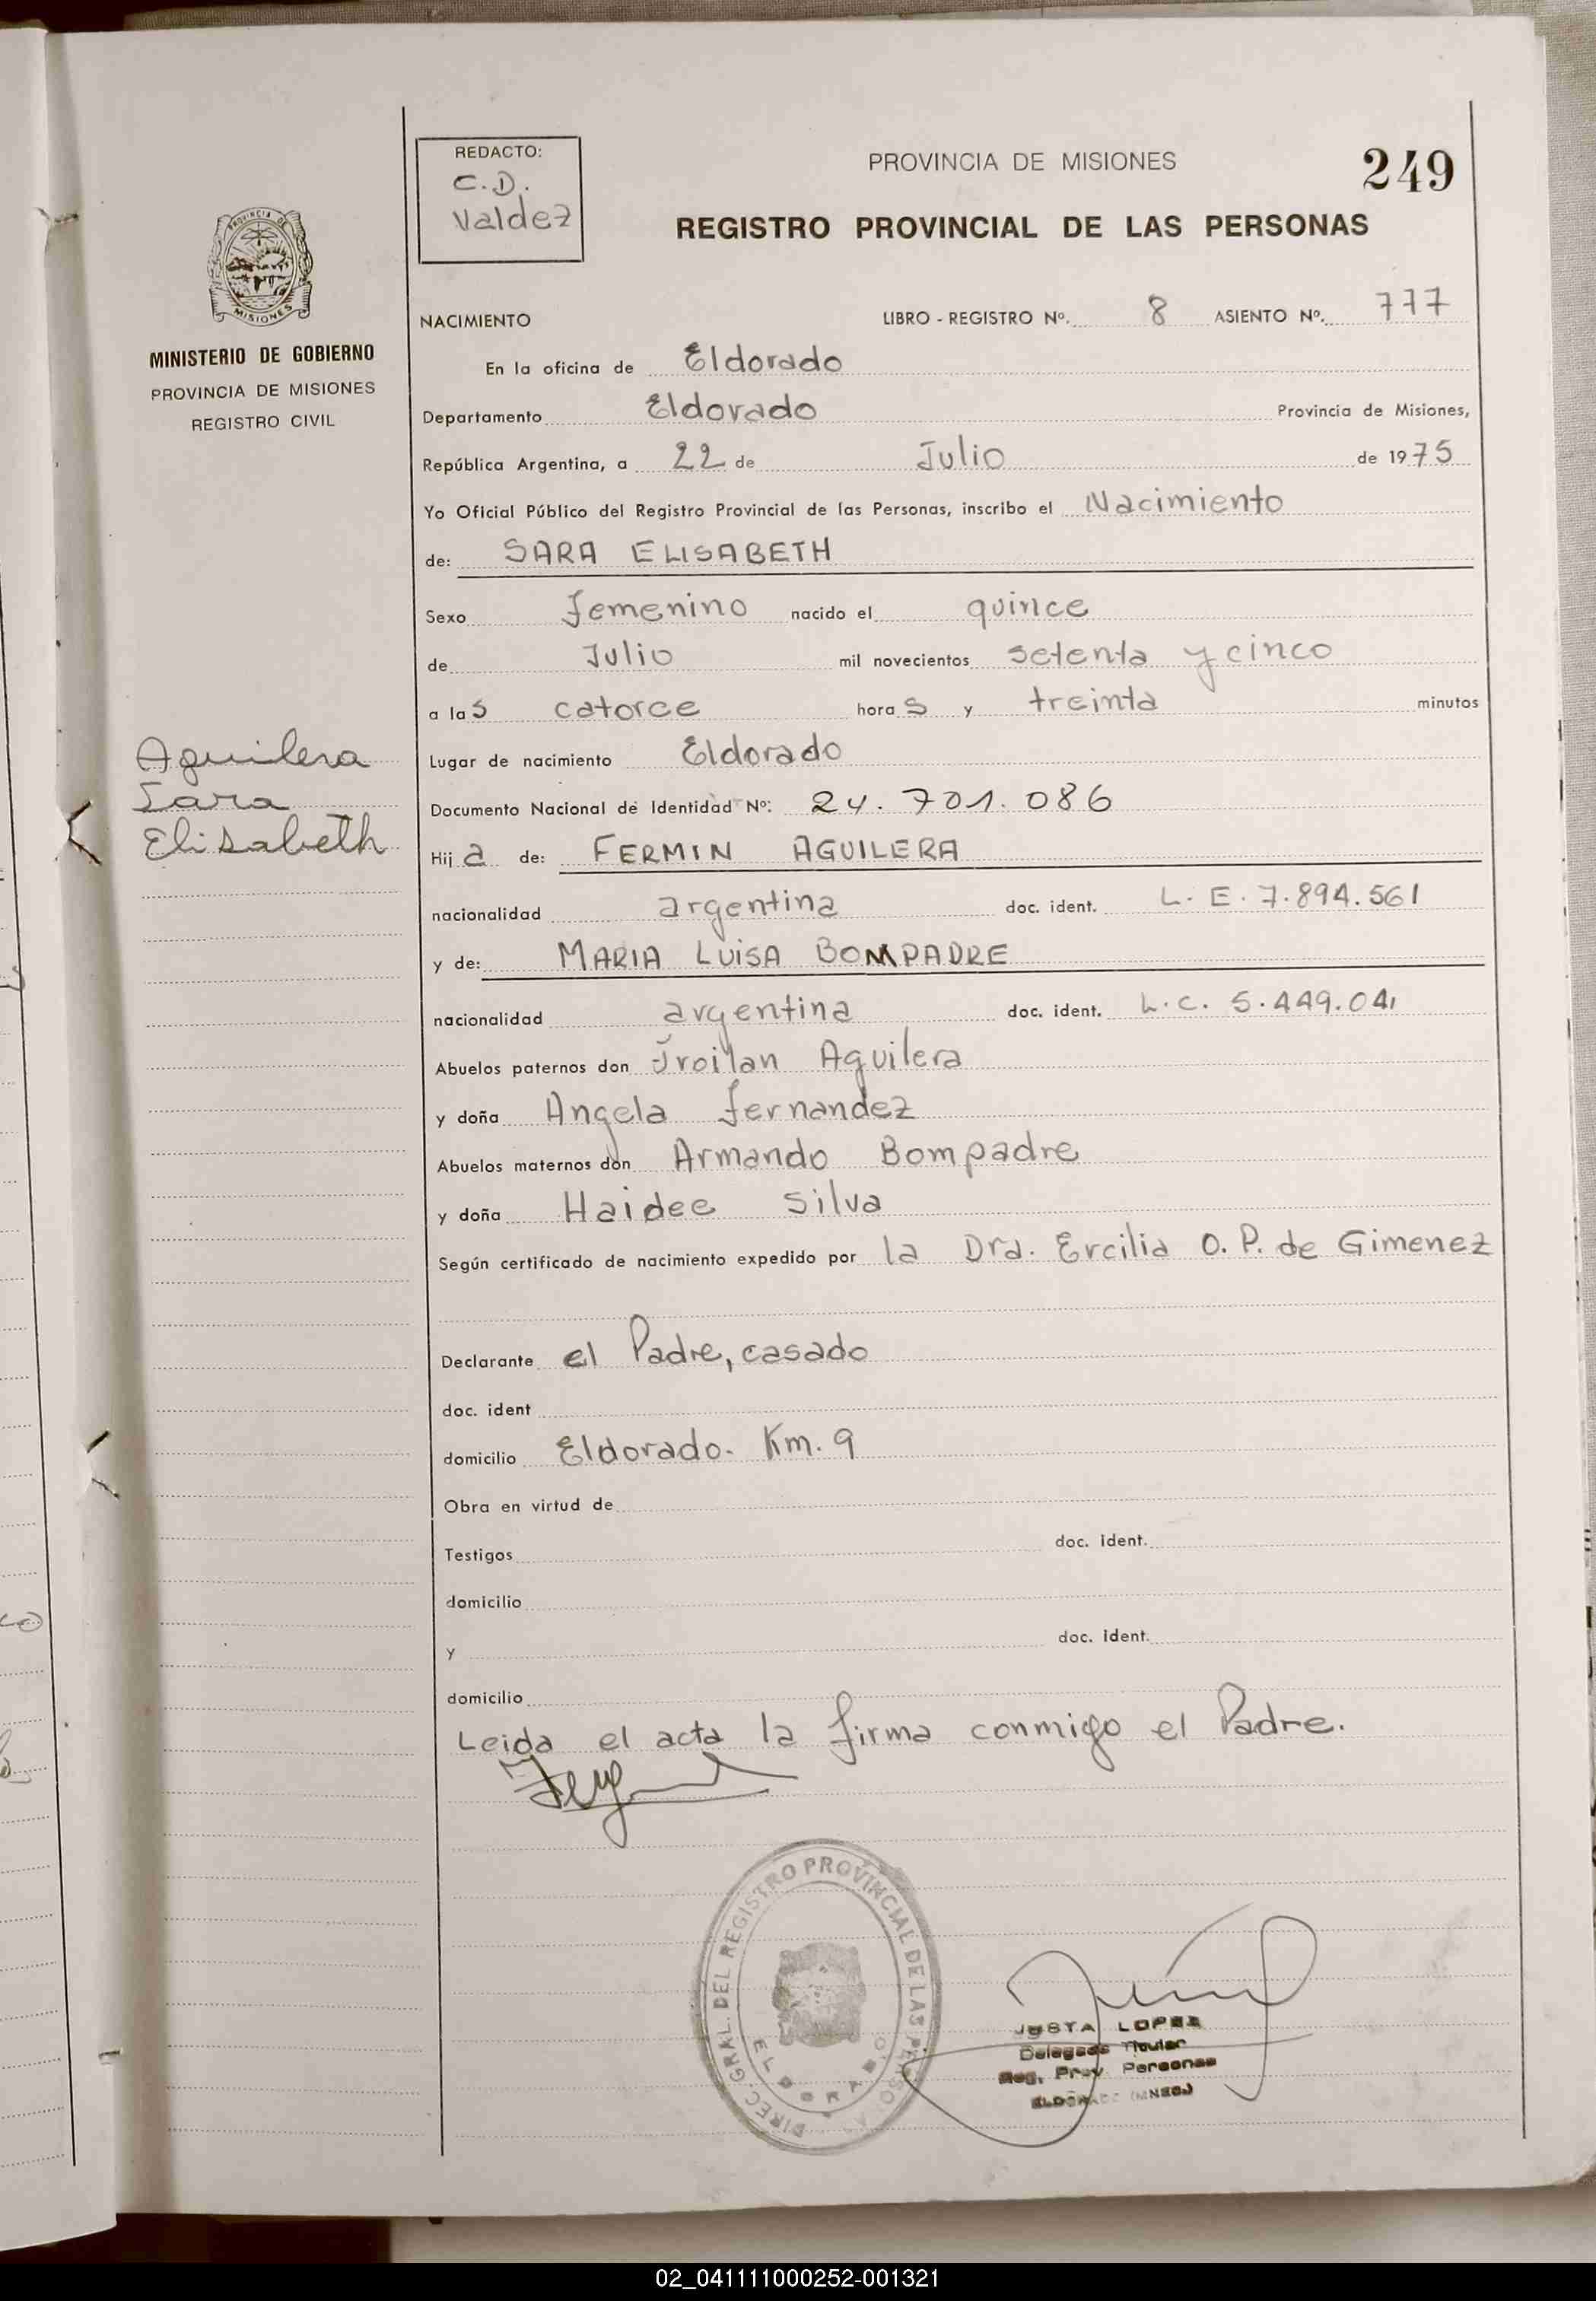 REDACTO:
C.D.
Valdez
PROVINCIA DE MISIONES
249
REGISTRO PROVINCIAL DE LAS PERSONAS
PROVINCIA DE
MISIONES
MINISTERIO DE GOBIERNO
PROVINCIA DE MISIONES
REGISTRO CIVIL
NACIMIENTO LIBRO - REGISTRO Nº. 8 ASIENTO Nº. 777
En la oficina de Eldorado
Departamento Eldorado Provincia de Misiones,
República Argentina, a 22 de Julio de 1975
Yo Oficial Público del Registro Provincial de las Personas, inscribo el Nacimiento
de: SARA ELISABETH
Sexo Femenino nacido el quince
de Julio mil novecientos setenta y cinco
a las catorce horas y treinta minutos
Lugar de nacimiento Eldorado
Aguilera
Sara
Elisabeth
Documento Nacional de Identidad Nº: 24.701.086
Hija de: FERMIN AGUILERA
nacionalidad argentina doc. ident. L.E. 7.894.561
y de: MARIA LUISA BOMPADRE
nacionalidad argentina doc. ident. L.C. 5.449.041
Abuelos paternos don Froilan Aguilera
y doña Angela Fernandez
Abuelos maternos don Armando Bompadre
y doña Haidee Silva
Según certificado de nacimiento expedido por la Dra. Ercilia O. P. de Gimenez
Declarante el Padre, casado
doc. ident
domicilio Eldorado. Km. 9
Obra en virtud de
Testigos doc. ident.
domicilio
y doc. ident.
domicilio
Leida el acta la firma conmigo el Padre.
DIREC. GRAL. DEL REGISTRO PROVINCIAL DE LAS PERSONAS
ELDORADO
JUSTA LOPEZ
Delegada Titular
Reg. Prov. Personas
ELDORADO (MNES.)
02_041111000252-001321